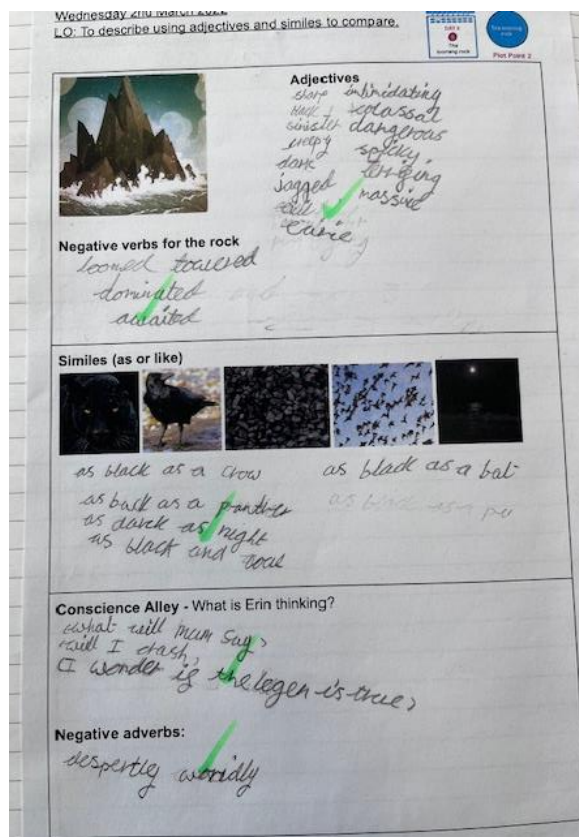 Wednesday 2nd March 2022
LO: To describe using adjectives and similes to compare.
The booming rock
Plot Point 2
Adjectives
sharp intimidating
colossal
sinister dangerous
creepy spicky,
dark terrifging
jagged massive
eirie
Negative verbs for the rock
loomed towered
dominated
awaited
Similes (as or like)
as black as a crow as black as a bat
as back as a panther
as darck as night
as black and coal
Conscience Alley - What is Erin thinking?
what will mum say?
will I crash,
I wonder if the legen is true?
Negative adverbs:
despertly worridly